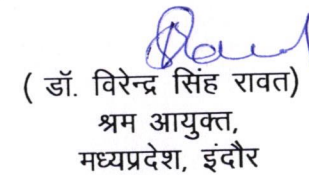 ( डॉ. विरेन्द्र सिंह रावत)
श्रम आयुक्त,
मध्यप्रदेश, इंदौर